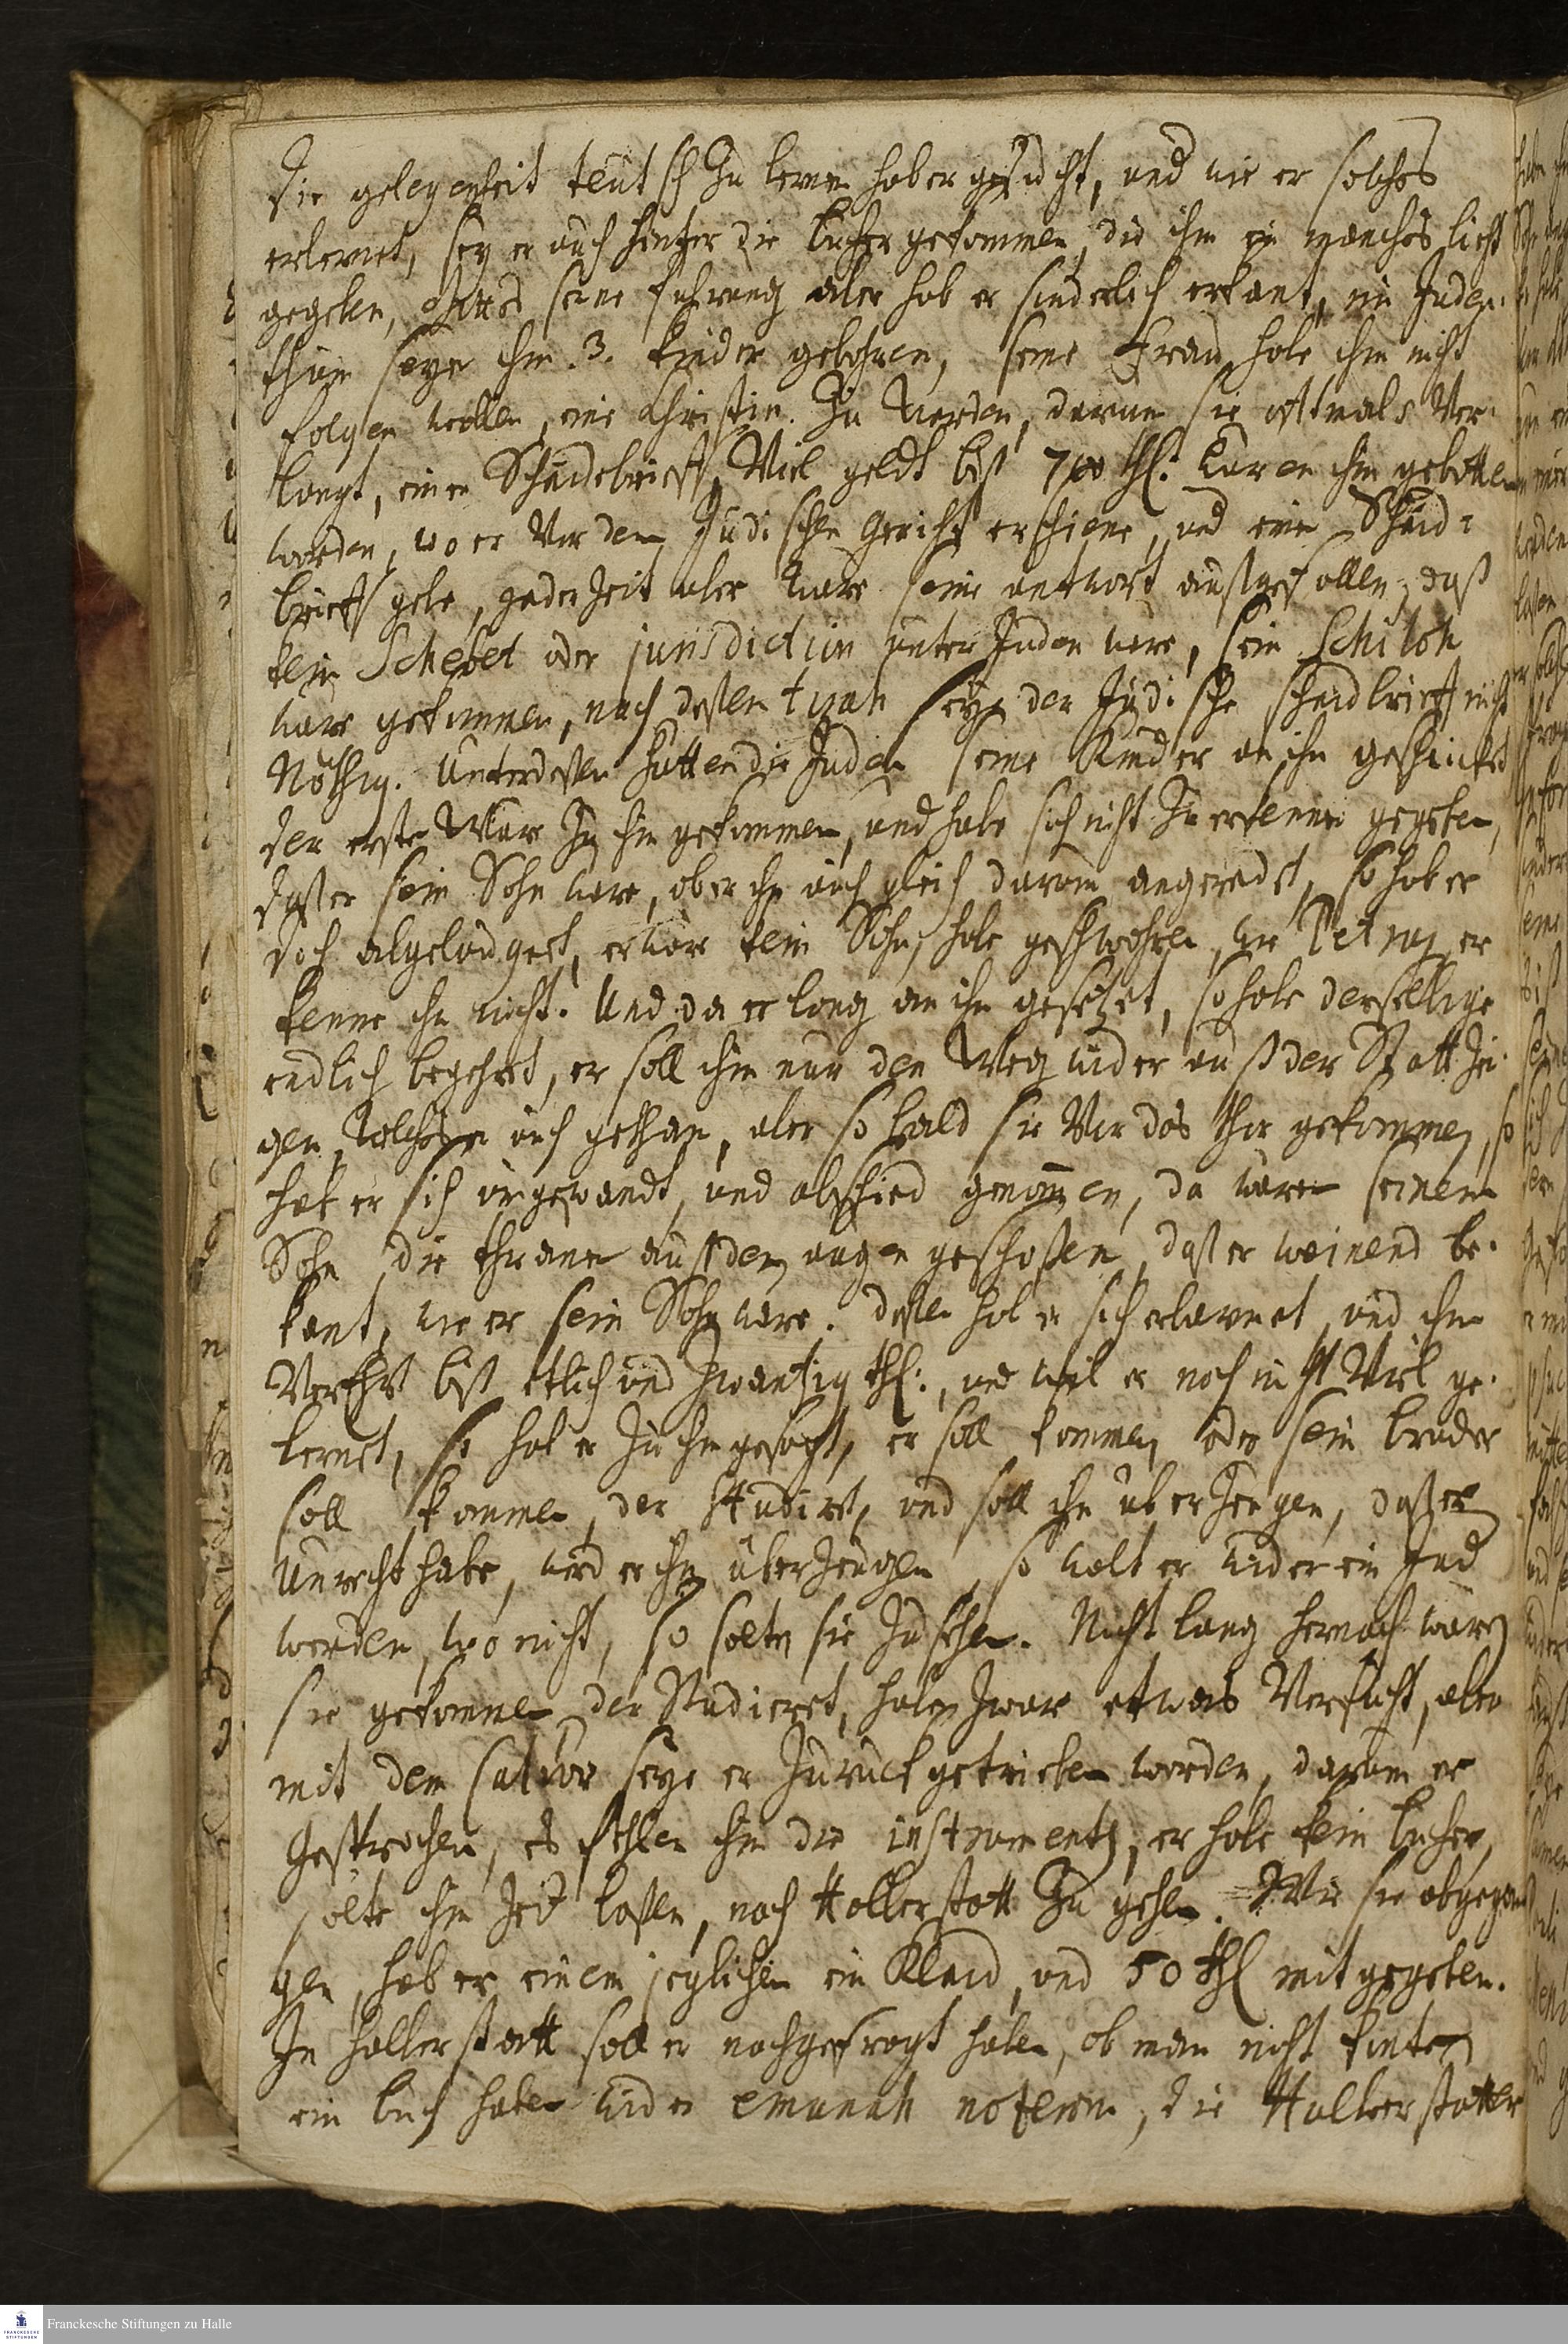 die gelegenheit teutsch zu lernen hab er gesucht, und wie er solches
erlernet, sey er auch hinter die bücher gekommen, die ihm ein manches licht
gegeben, Gottes seine führung aber hab er sinderlich erkant, im Juden-
thum seyen ihm .3. kinder gebohren, seine Frau habe ihm nicht
folgen wollen, eine Christin zu werden, darum sie offtmals Ver-
langt, einen Scheidebrieff, Viel geldt biß 700 thl: waren ihm gebotten
worden, wo er Vor dem Jüdischen Gericht erschiene, und einen Scheid-
brieff gebe, jederzeit aber ware seine antwort außgefallen, daß
kein Schebet oder jurisdiction unter Juden ware, sein Schiloh
ware gekommen, nach deßen torah seye der Jüdische scheidbrieff nicht
Nöthig. Unterdeßen hatten die Juden seine Kinder an ihn geschicket
der erste ware zu ihm gekommen, und habe sich nicht zu erkennen gegeben,
daß er sein Sohn ware, ob er ihn auch gleich darum angeredet, so hab er
doch abgelaugnet, er ware kein Sohn, habe geschwohren, wie Petrus, er
kenne ihn nicht. Und da er lang an ihn gesetzet, so habe derselbige
endlich begehret, er soll ihm nur den Weg wider auß der Statt zei-
gen, welches er auch gethan, aber so bald sie Vor das thor gekommen, so
hab er sich umgewandt, und abschied genommen, da waren seinem
Sohn die thranen auß den augen geschoßen, daß er weinend be-
kant, wie er sein Sohn ware. deßen hab er sich erbarmet, und ihm
Verehrt biß etlich und zwantzig thl:, und weil er noch nicht Viel ge-
lernet, so hab er zu ihm gesagt, er soll kommen, oder sein bruder
soll kommen, der studiret, und soll ihn überzeugen, daß er
Unrecht habe, werd er ihn überzeugen, so wolt er wider ein Jud
werden, wo nicht, so solten sie zusehen. Nicht lang hernach waren
sie gekommen, der Studieret, haben zwar etwas Versucht, aber
mit dem satzor seye er zuruck getrieben worden, darum er
Gesprochen, es fehlen ihm die instrumenta, er habe kein bücher,
solte ihm Zeit laßen, nach Halberstatt zu gehen. Wie sie abgegan-
gen, hab er einem jeglichen ein Kleid, und 50 thl mitgegeben.
In halberstatt soll er nachgefragt haben, ob man nicht könte
ein buch haben wider emunah nozerim, die Halberstatter
Franckesche Stiftungen zu Halle